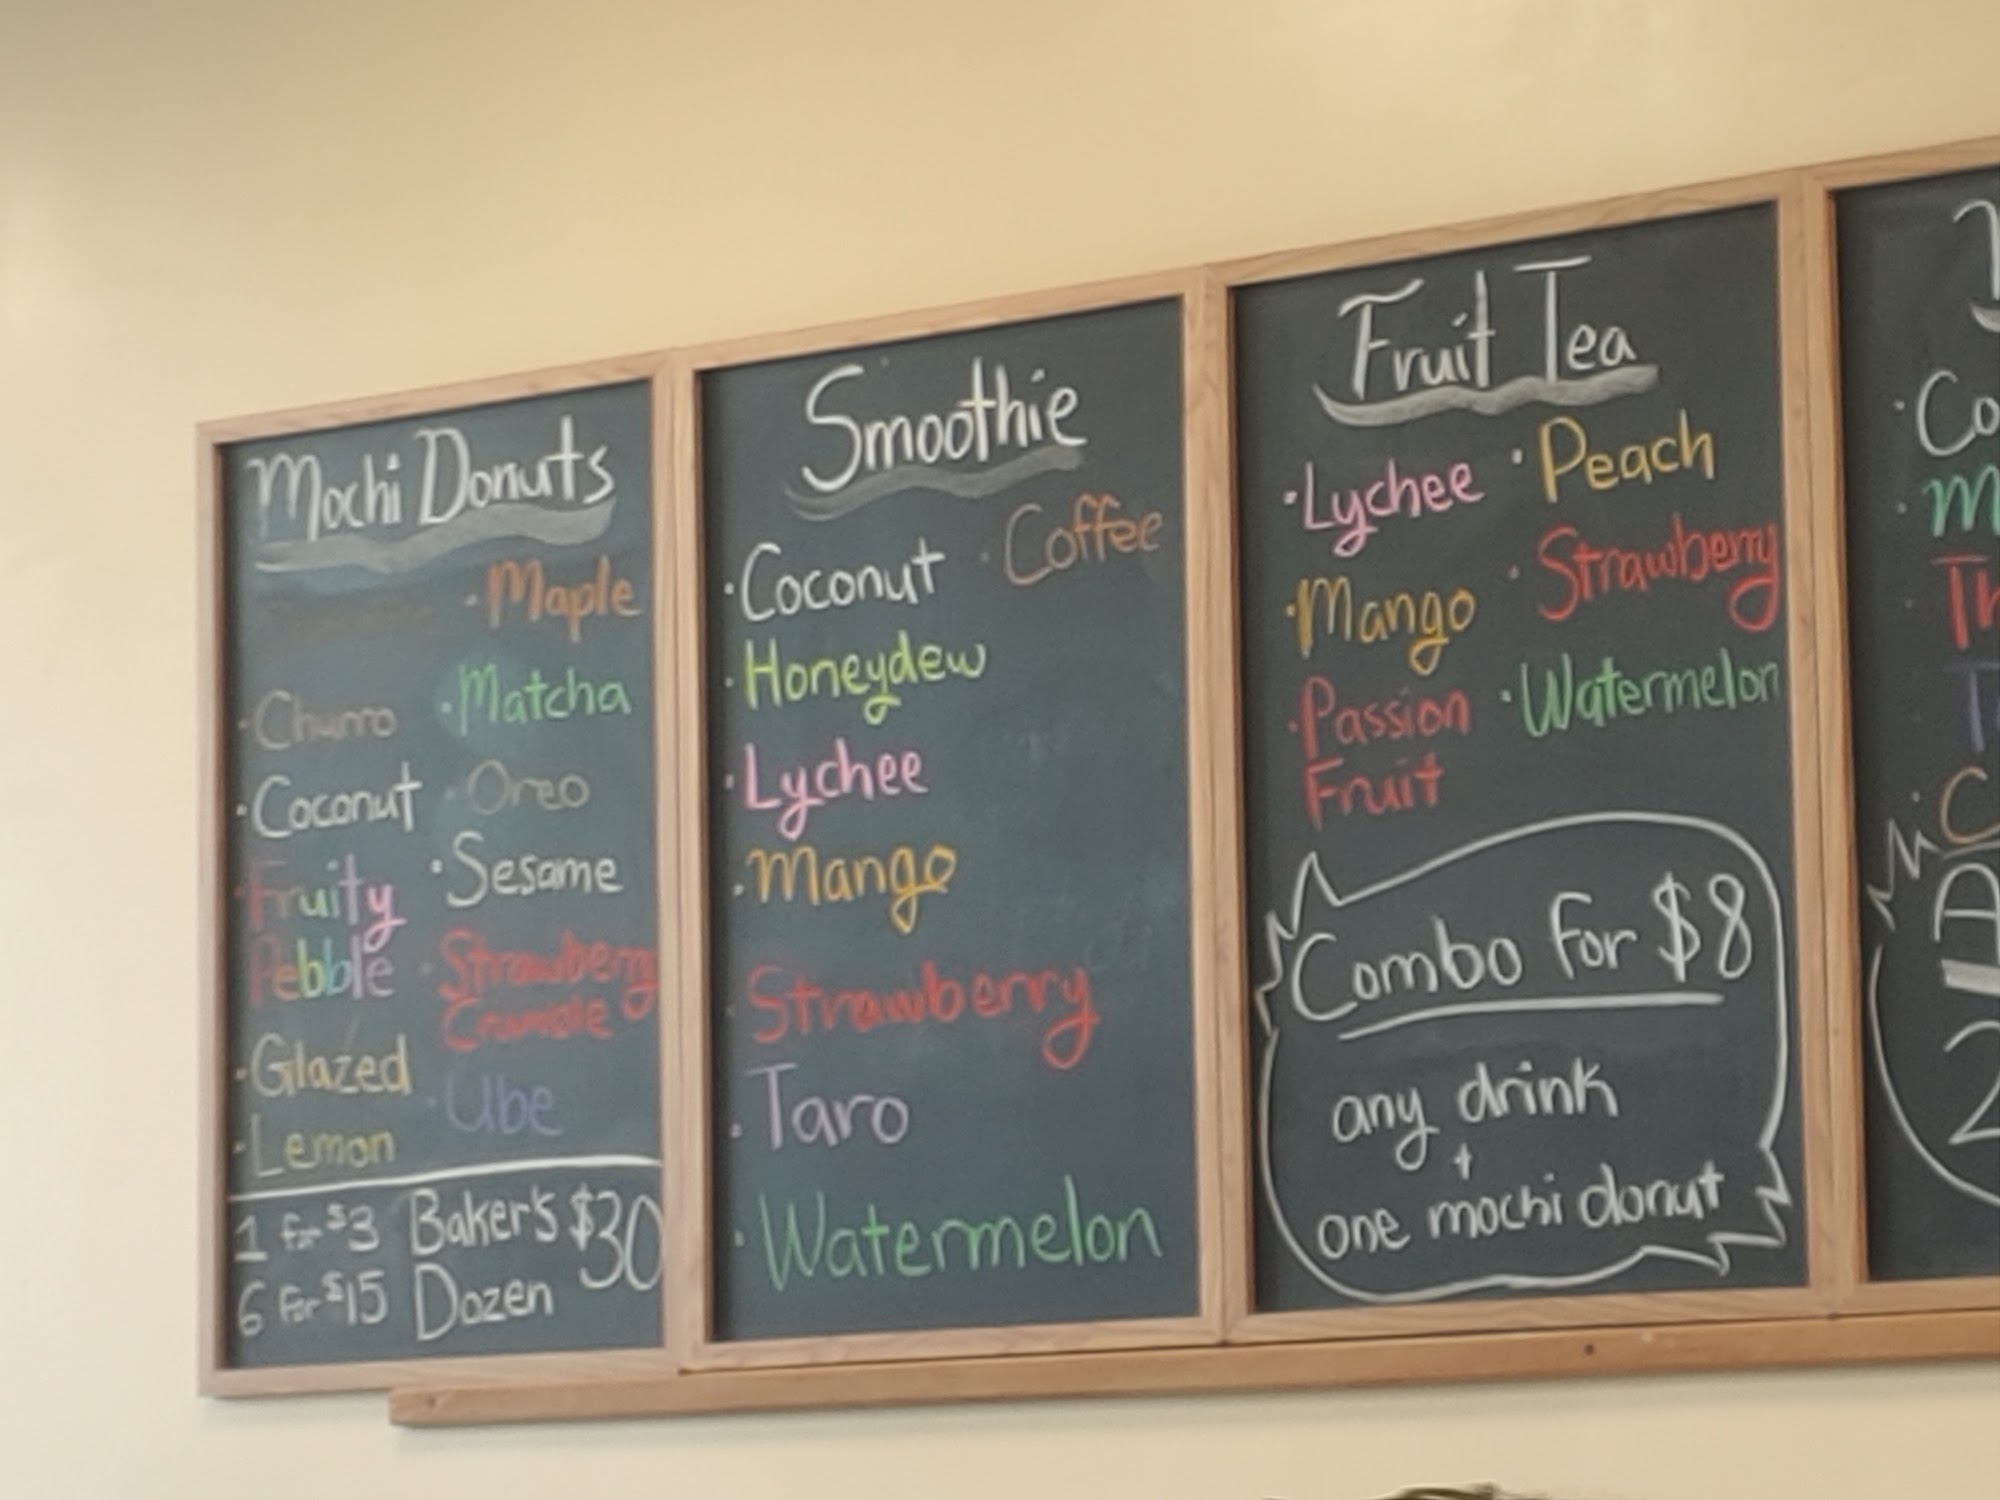 Mochi Donuts
· Maple
· Churro
· Matcha
· Coconut
· Oreo
· Fruity
Pebble
· Sesame
· Strawberry
Crumble
· Glazed
· Ube
· Lemon
1 for $3
6 for $15
Baker's $30
Dozen
Smoothie
· Coconut
· Coffee
· Honeydew
· Lychee
· Mango
· Strawberry
· Taro
· Watermelon
Fruit Tea
· Lychee
· Peach
· Mango
· Strawberry
· Passion
Fruit
· Watermelon
Combo for $8
any drink
+
one mochi donut